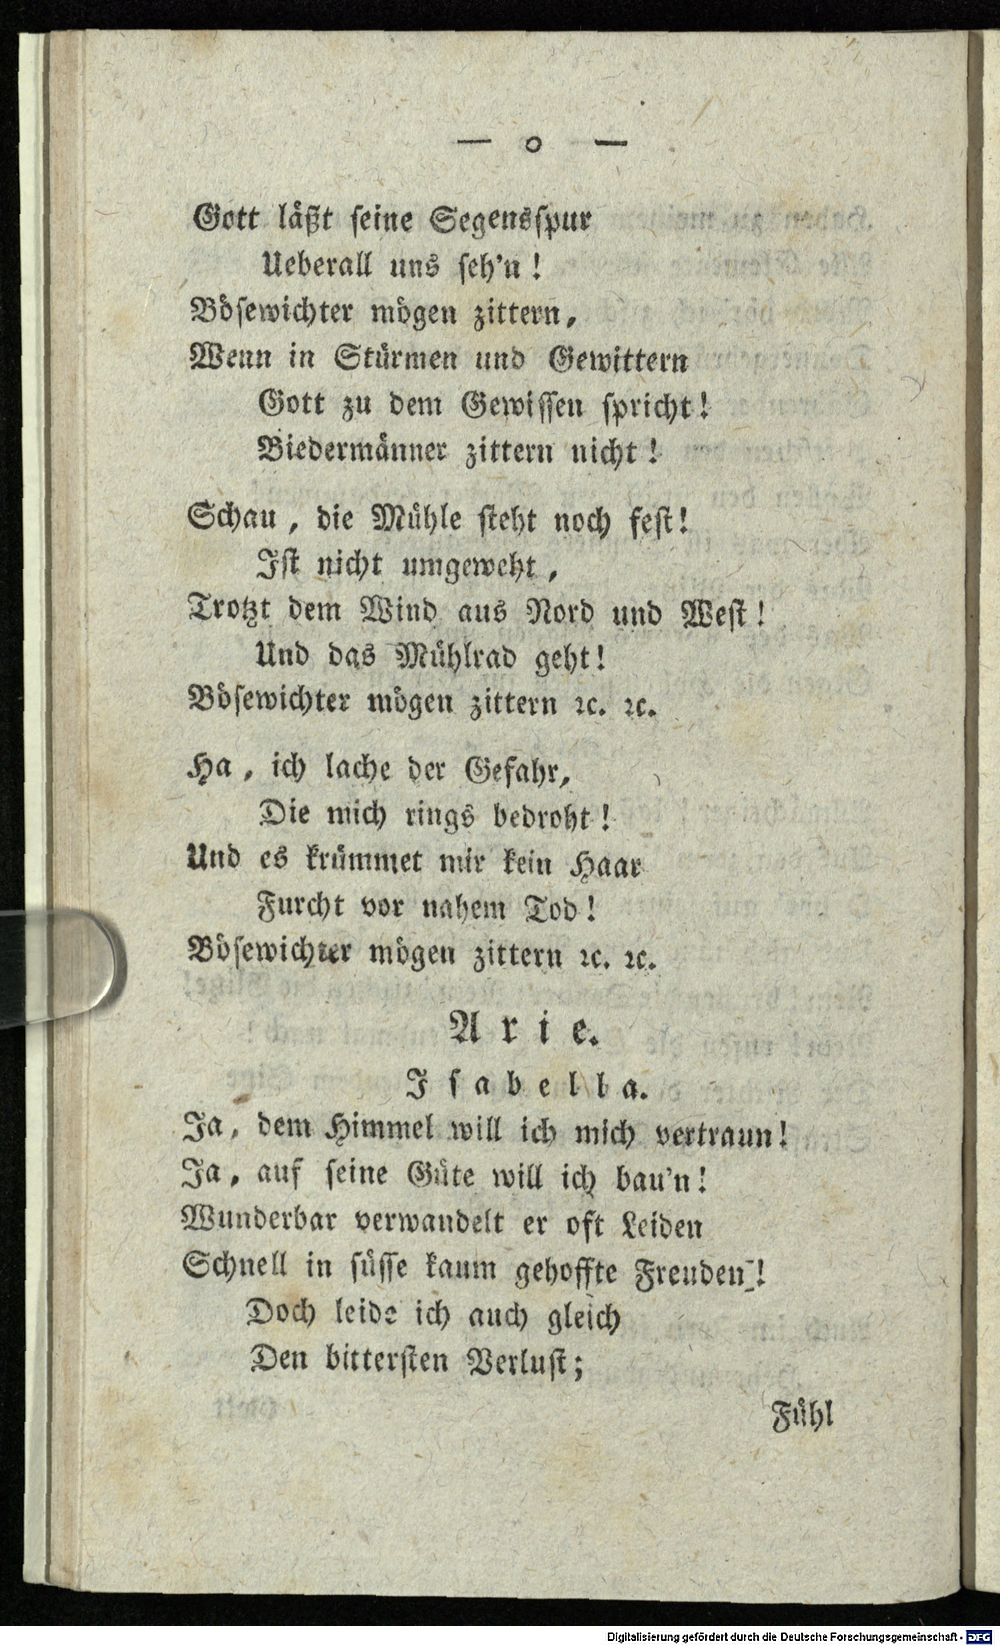 — o —
Gott läßt seine Segensspur
Ueberall uns seh'n!
Bösewichter mögen zittern,
Wenn in Stürmen und Gewittern
Gott zu dem Gewissen spricht!
Biedermänner zittern nicht!
Schau, die Mühle steht noch fest!
Ist nicht umgeweht,
Trotzt dem Wind aus Nord und West!
Und das Mühlrad geht!
Bösewichter mögen zittern ꝛc. ꝛc.
Ha, ich lache der Gefahr,
Die mich rings bedroht!
Und es krümmet mir kein Haar
Furcht vor nahem Tod!
Bösewichter mögen zittern ꝛc. ꝛc.
Arie.
Isabella.
Ja, dem Himmel will ich mich vertraun!
Ja, auf seine Güte will ich bau'n!
Wunderbar verwandelt er oft Leiden
Schnell in süsse kaum gehoffte Freuden!
Doch leide ich auch gleich
Den bittersten Verlust;
Fühl
Digitalisierung gefördert durch die Deutsche Forschungsgemeinschaft - DFG